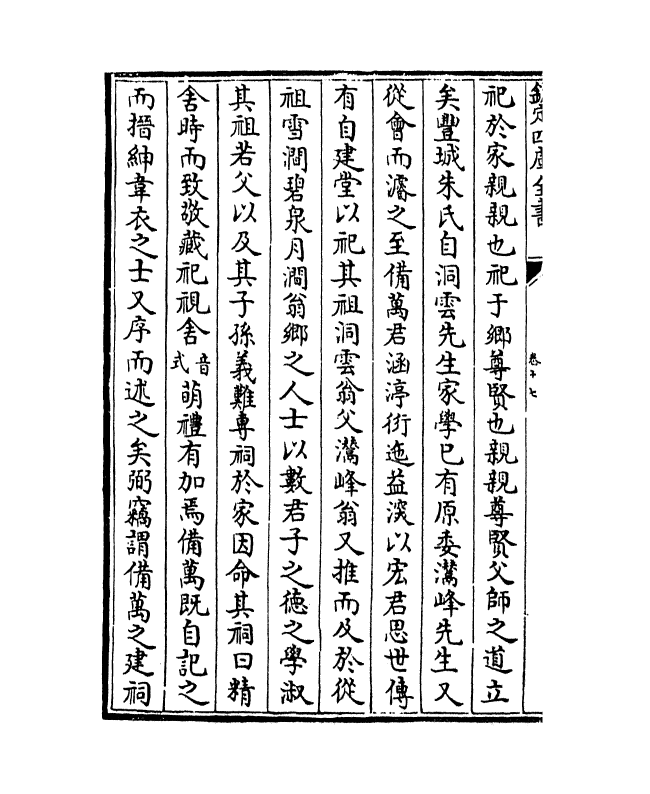 欽定四庫全書
卷十七
祀於家親親也祀于鄉尊賢也親親尊賢父師之道立
矣豐城朱氏自洞雲先生家學已有原委灊峰先生又
從會而濬之至備萬君涵渟衍迤益深以宏君思世傳
有自建堂以祀其祖洞雲翁父灊峰翁又推而及於從
祖雪澗碧泉月澗翁鄉之人士以數君子之德之學淑
其祖若父以及其子孫義難專祠於家因命其祠曰精
舍時而致敬藏祀視舍音式萌禮有加焉備萬既自記之
而搢紳韋衣之士又序而述之矣弼竊謂備萬之建祠